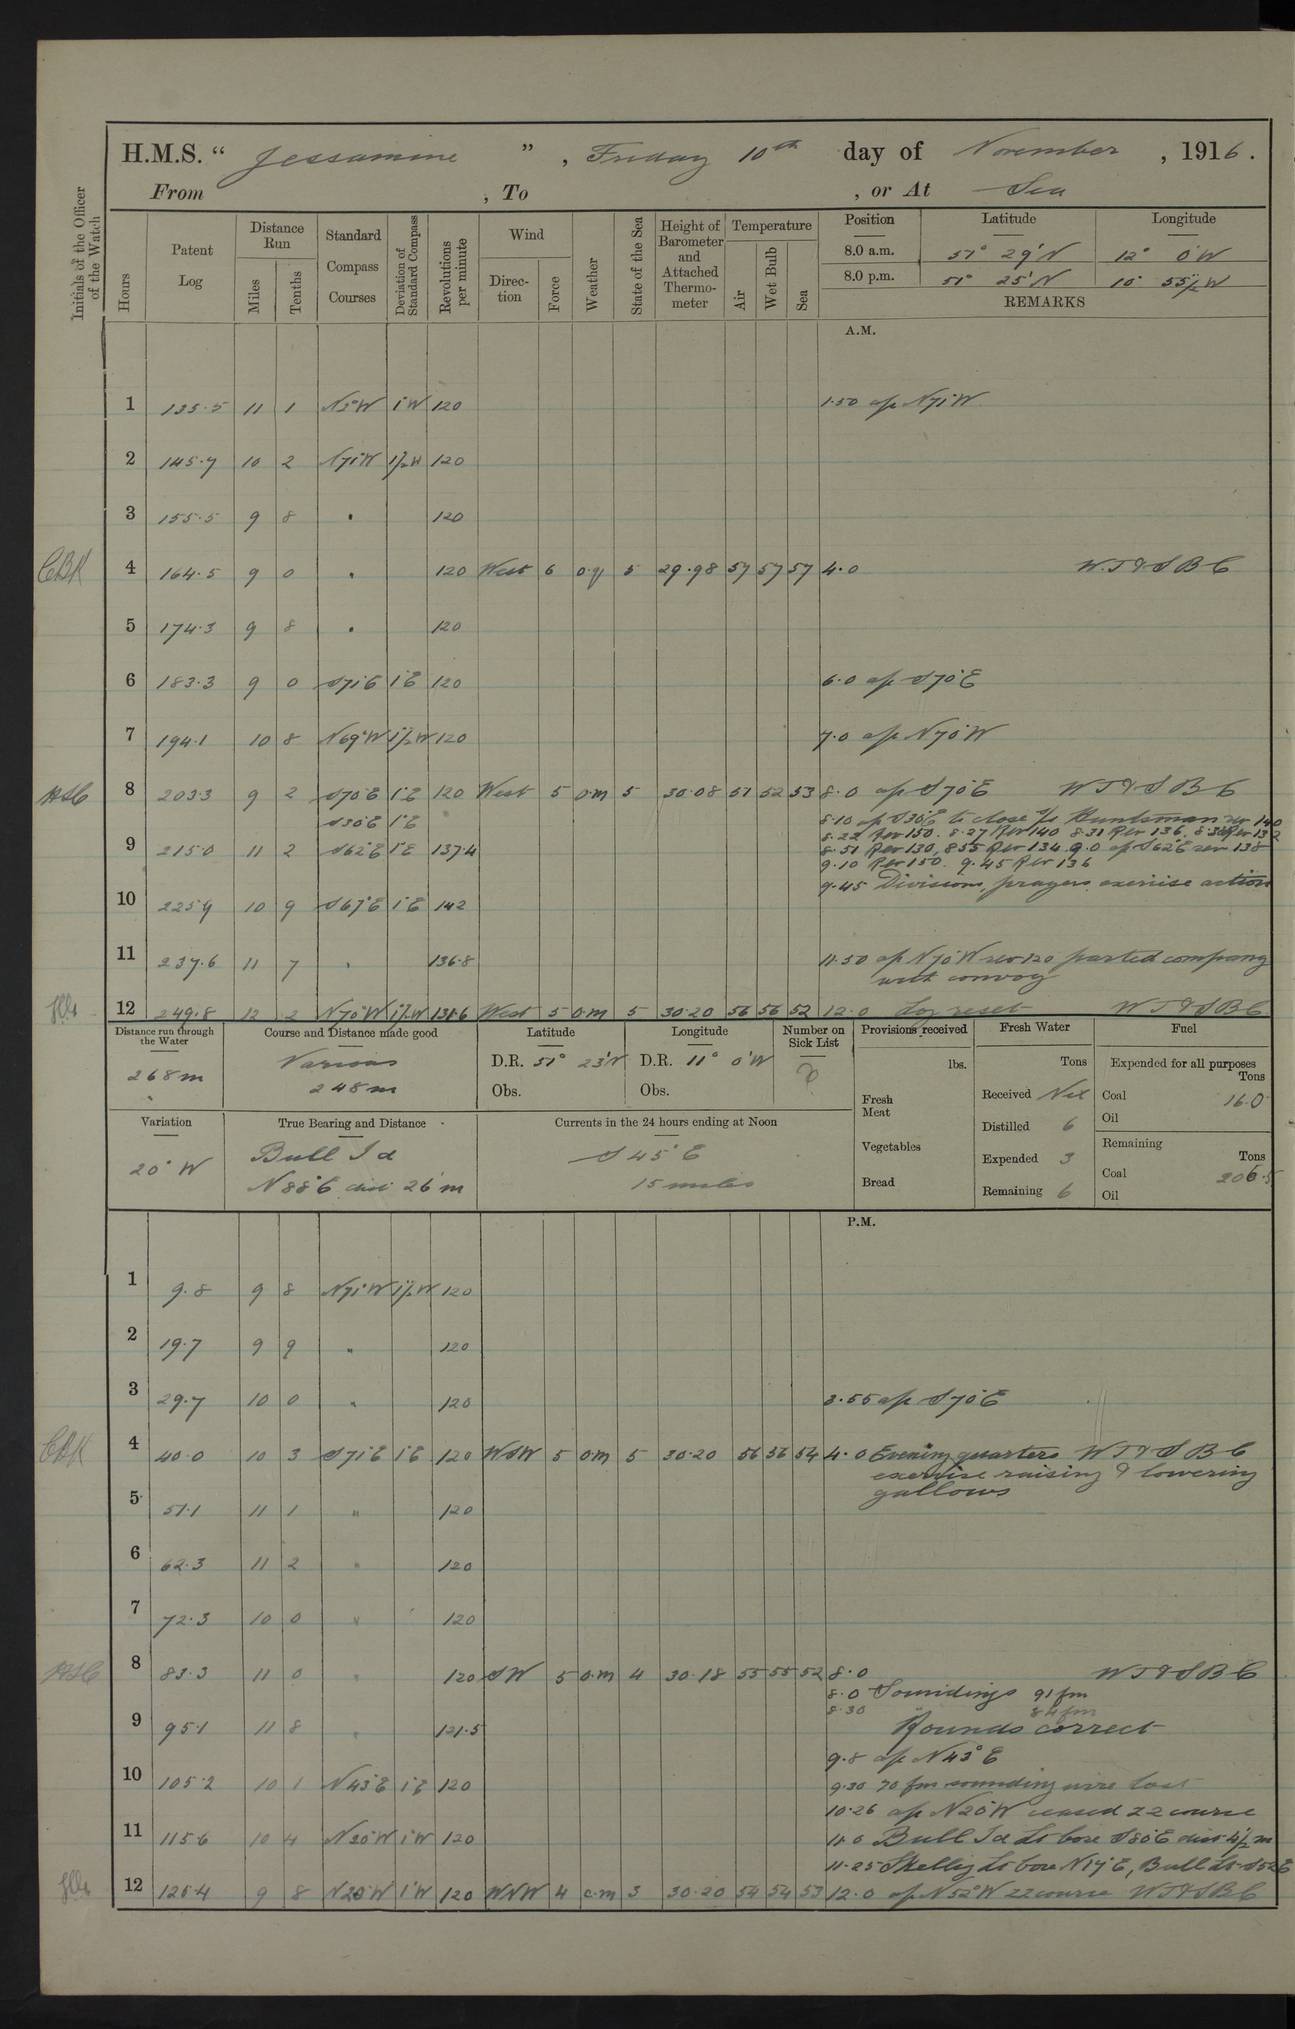 H.M.S. “ Jessamine ” , Friday 10th day of November , 1916.
From , To , or At Sea
Initials of the Officer of the Watch
Hours
Patent Log
Distance Run
Miles
Tenths
Standard Compass Courses
Deviation of Standard Compass
Revolutions per minute
Wind
Direction
Force
Weather
State of the Sea
Height of Barometer and Attached Thermometer
Temperature
Air
Wet Bulb
Sea
Position Latitude Longitude
8.0 a.m. 51° 29'N 12° 0'W
8.0 p.m. 51° 25'N 10° 55½'W
REMARKS
A.M.
1 135.5 11 1 N3°W 1°W 120 1.50 a/c N71°W
2 145.7 10 2 N71°W 1½°W 120
3 155.5 9 8 " 120
CBK 4 164.5 9 0 " 120 West 6 o.q 5 29.98 57 57 57 4.0 W.T & S B C
5 174.3 9 8 " 120
6 183.3 9 0 S71°E 1°E 120 6.0 a/c S70°E
7 194.1 10 8 N69°W 1½°W 120 7.0 a/c N70°W
8 203.3 9 2 S70°E 1°E 120 West 5 o.m 5 30.08 51 52 53 8.0 a/c S70°E W T & S B C
S30°E 1°E 8.10 a/c S30°E to close Huntsman rev 140
8.22 Rev 150. 8.27 Rev 140 8.31 Rev 136. Rev 132
9 215.0 11 2 S62°E 1°E 137.4 8.51 Rev 130, 8.55 Rev 134 9.0 a/c S62°E rev 138
9.10 Rev 150. 9.45 Rev 136
9.45 Divisions, prayers exercise action
10 225.9 10 9 S67°E 1°E 142
11 237.6 11 7 " 136.8 11.50 a/c N70°W rev 120 parted company
with convoy
12 249.8 12 2 N70°W 1½°W 131.6 West 5 o.m 5 30.20 56 56 52 12.0 Log reset W T & S B C
Distance run through the Water
268m
Course and Distance made good
Various
248m
Latitude
D.R. 51° 23'N
Obs.
Longitude
D.R. 11° 0'W
Obs.
Number on Sick List
2
Provisions received
lbs.
Fresh Meat
Vegetables
Bread
Fresh Water
Tons
Received Nil
Distilled 6
Expended 3
Remaining 6
Fuel
Expended for all purposes
Tons
Coal 16.0
Oil
Remaining
Tons
Coal 206.5
Oil
Variation
20° W
True Bearing and Distance
Bull Id
N88°E dist 26 m
Currents in the 24 hours ending at Noon
S 45° E
15 miles
P.M.
1 9.8 9 8 N71°W 1½°W 120
2 19.7 9 9 " 120
3 29.7 10 0 " 120 3.55 a/c S70°E
CBK 4 40.0 10 3 S71°E 1°E 120 WSW 5 o.m 5 30.20 56 56 54 4.0 Evening quarters W T & S B C
exercise raising & lowering
gallows
5 51.1 11 1 " 120
6 62.3 11 2 " 120
7 72.3 10 0 " 120
8 83.3 11 0 " 120 SW 5 o.m 4 30.18 55 55 52 8.0 W T & S B C
8.0 Soundings 91 fm
8.30 84 fm
9 95.1 11 8 " 121.5 Rounds correct
9.8 a/c N43°E
10 105.2 10 1 N43°E 1°E 120 9.30 70 fm sounding wire lost
10.26 a/c N20°W ceased zz course
11 115.6 10 4 N20°W 1°W 120 11.0 Bull Id Lt bore S80°E dist 4½ m
11.25 Skellig Lt bore N17°E, Bull Lt S52°E
12 125.4 9 8 N20°W 1°W 120 WNW 4 c.m 3 30.20 54 54 53 12.0 a/c N52°W zz course W T & S B C